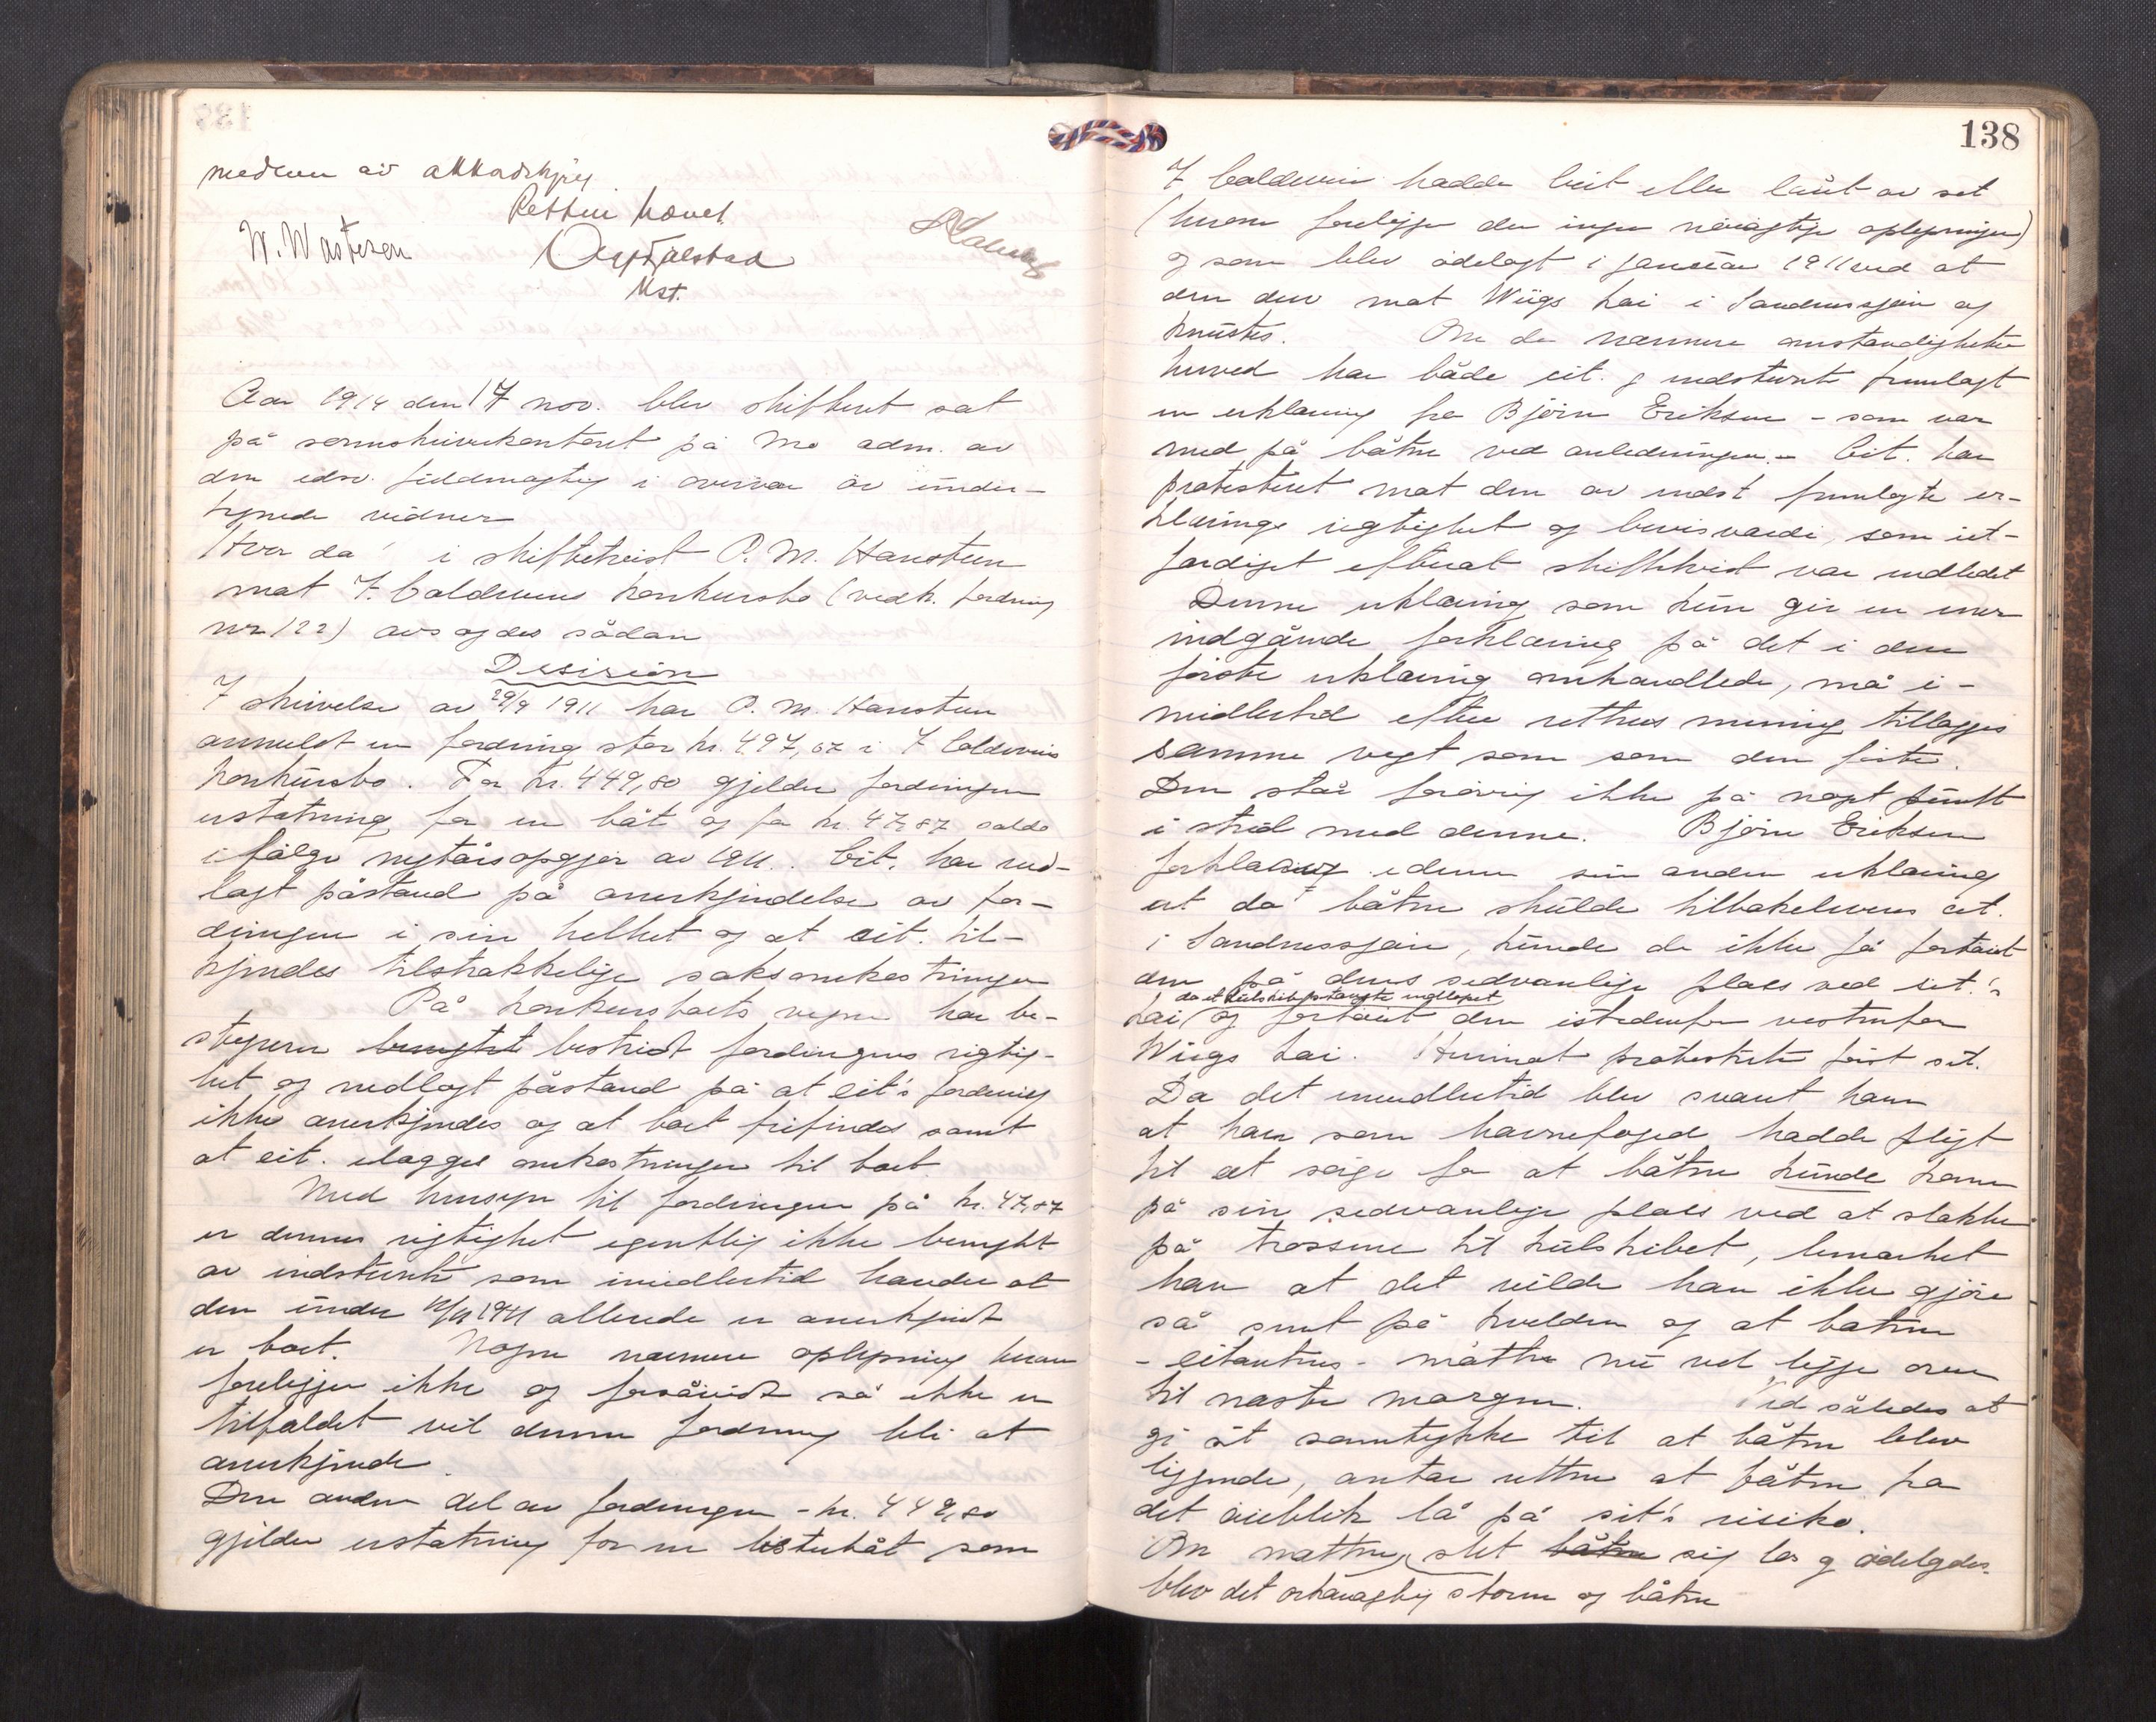 medlem av akkordskjøn
Retten hævet
W. Wastesen
Mst.
Aar 1914 den 17 nov. blev skifteret sat
på sorenskriverkontoret på Mo adm. av
den edsv. fuldmægtig i overvær av under-
tegnede vidner
Hvor da i skiftetvist P. M. Hanssteen
mot F. Coldevins konkursbo (vedk. fordring
nr 122) avsagdes sådan
Decision
I skrivelse av 29/9 1911 har P. M. Hanssteen
anmeldt en fordring stor kr. 497,67 i F Coldevins
konkursbo. For kr. 449,80 gjelder fordringen
erstatning for en båt og for kr. 47,87 saldo
ifølge nytårsopgjør av 1911. Cit. har ned-
lagt påstand på anerkjendelse av for-
dringen i sin helhet og at cit. til-
kjendes tilstrækkelige saksomkostninger
På konkursboets vegne har be-
styreren benegtet bestridt fordringens rigtig-
het og nedlagt påstand på at cit's fordring
ikke anerkjendes og at boet frifindes samt
at cit. ilægges omkostninger til boet
Med hensyn til fordringen på kr. 47,87
er dennes rigtighet egentlig ikke benegtet
av indstevnte som imidlertid hævder at
den under 1911 allerede er anerkjendt
av boet. Nogen nærmere oplysning herom
foreligger ikke og forsåvidt så ikke er
tilfældet vil denne fordring bli at
anerkjende.
Den anden del av fordringen - kr. 449,80
gjelder erstatning for en listerbåt som
138
F Coldevin hadde leiet eller lånt av cit
(herom foreligger der ingen nøiagtige oplysninger)
og som blev ødelagt i januar 1911 ved at
den drev mot Wiigs kai i Sandnessjøen og
knustes. Om de nærmere omstændigheter
herved har både cit. og indstevnte fremlagt
en erklæring fra Bjørn Eriksen - som var
med på båten ved anledningen. - Cit. har
protestert mot den av indst fremlagte er-
klærings rigtighet og bevisværdi, som ut-
færdiget efterat skiftetvist var indledet
Denne erklæring som kun gir en mer
indgående forklaring på det i den
første erklæring omhandlede, må i-
midlertid efter rettens mening tillægges
samme vegt som som den første.
Den står forøvrig ikke på noget punkt
i strid med denne. Bjørn Eriksen
forklaring i denne sin anden erklæring
at da båten skulde tilbakeleveres cit.
i Sandnessjøen, kunde de ikke få fortøiet
den på dens sedvanlige plass ved cit.'s
da et kulskib stængte indløpet
kai og fortøiet den istedenfor vestenfor
Wiigs kai. Herimot protesterte først cit.
Da det imidlertid blev svaret ham
at han som havnefoged hadde pligt
til at sørge for at båten kunde komme
på sin sedvanlige plass ved at slakke
på trossene til kulskibet, bemærket
han at det vilde han ikke gjøre
så sent på kvelden og at båten
- citantens - måtte nu vel ligge over
til næste morgen. Ved således at
gi sit samtykke til at båten blev
liggende, antar retten at båten fra
det øieblik lå på cit's risiko.
Om natten slet båten sig løs og ødelagdes.
blev det orkanagtig storm og båten